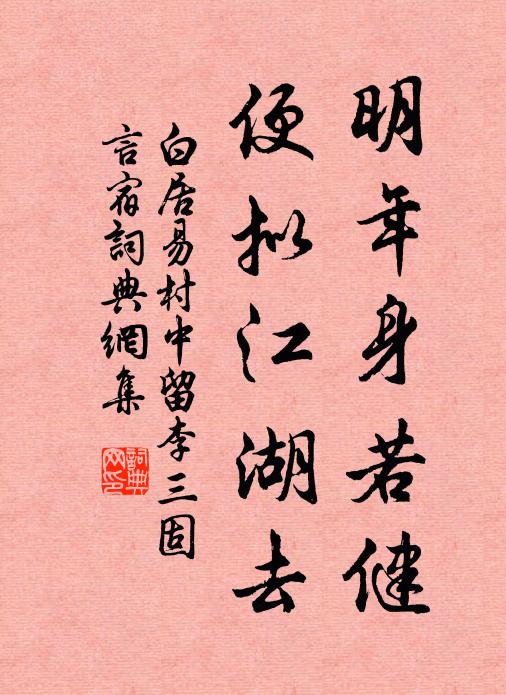 明年身若健
便拟江湖去
白居易村中留李三固
言宿詞典網集
詞典
网印